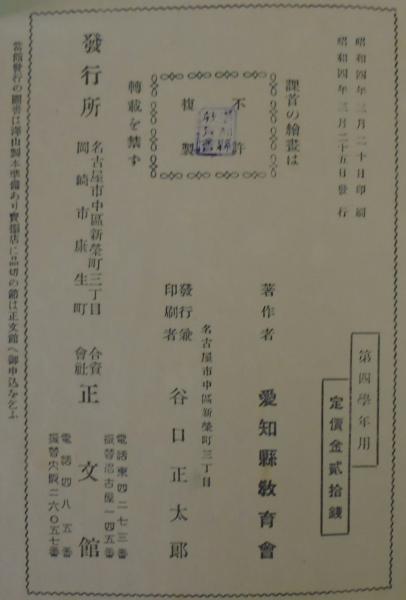 第四學年用
定價金貳拾錢
昭和四年三月二十日印刷
昭和四年三月二十五日發行
課首の繪畫は
不許
複製
轉載を禁ず
著作者 愛知縣敎育會
名古屋市中區新榮町三丁目
發行兼
印刷者 谷口正太郎
發行所
名古屋市中區新榮町三丁目
岡崎市康生町
合資
會社 正文館
電話東四二七三番
振替名古屋一四五番
電話四八五番
振替大阪二六〇五七番
當館發行の圖書は澤山製本準備あり賣捌店に品切の節は正文館へ御申込を乞ふ